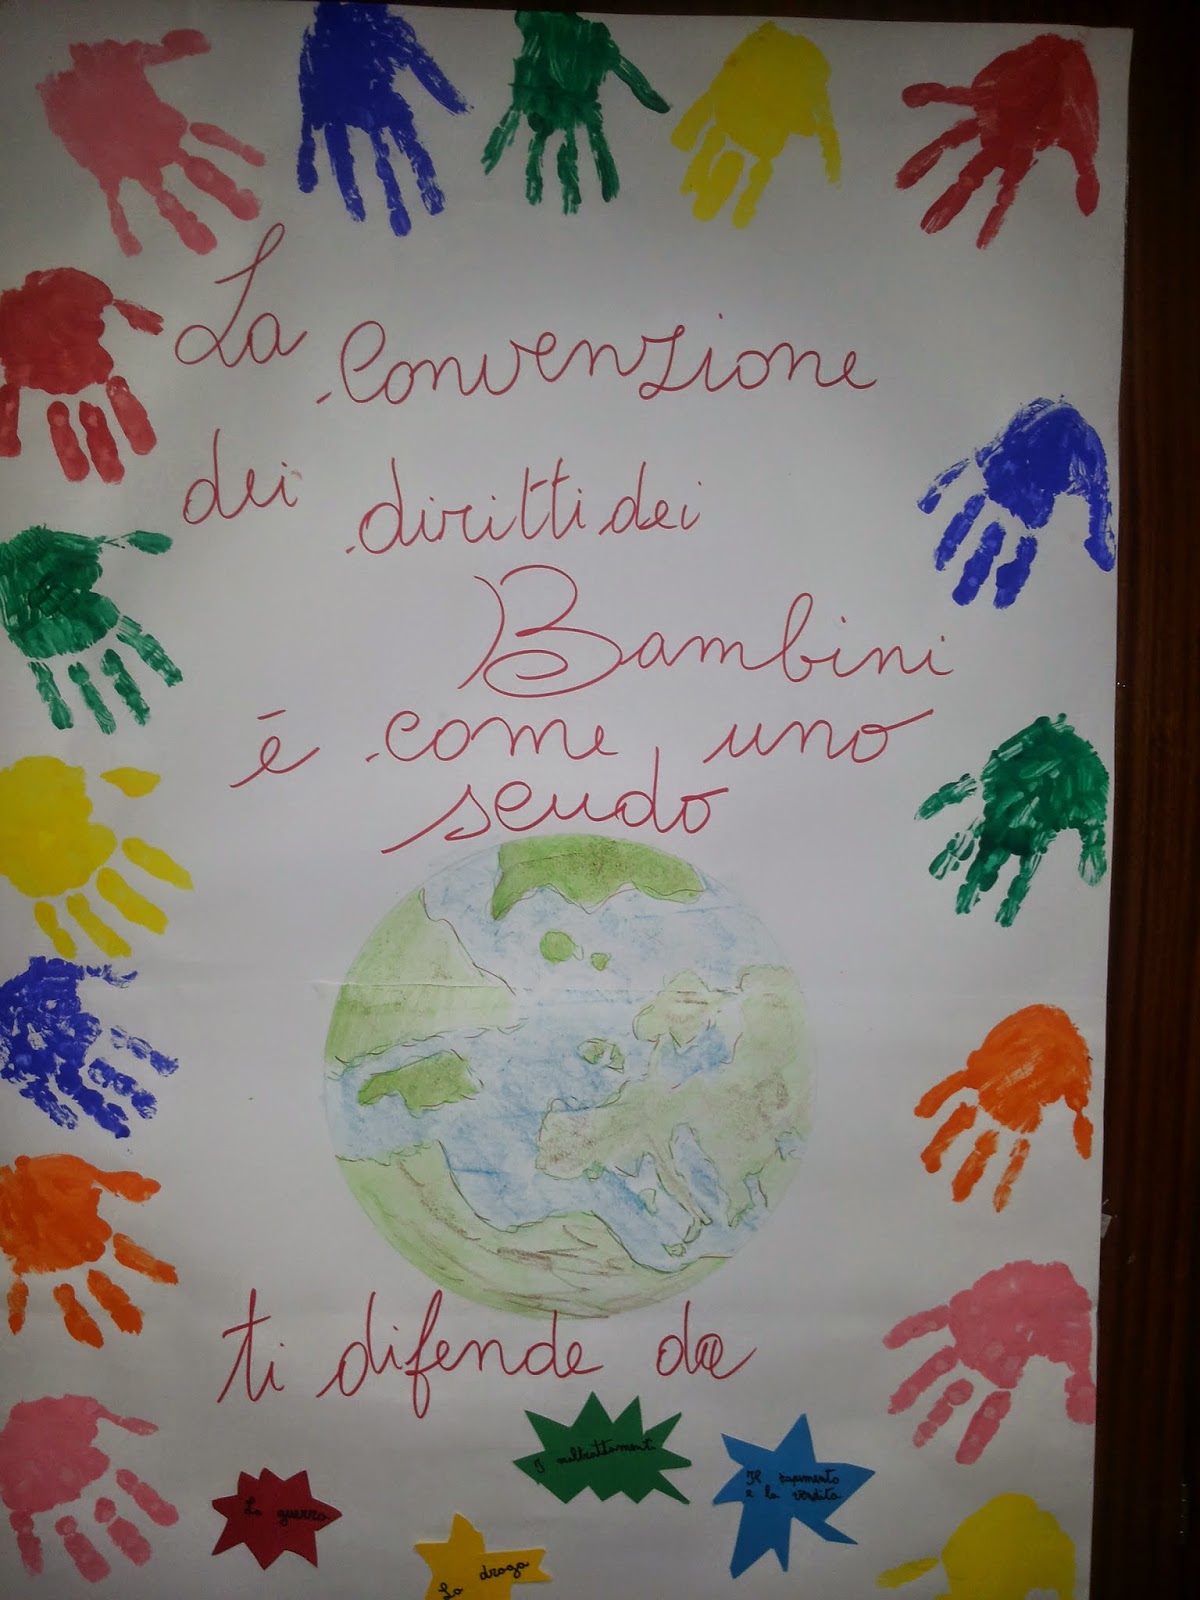 La Convenzione
dei diritti dei
Bambini
è come uno
scudo
ti difende da
I maltrattamenti
Il rapimento
e la vendita
La guerra
La droga